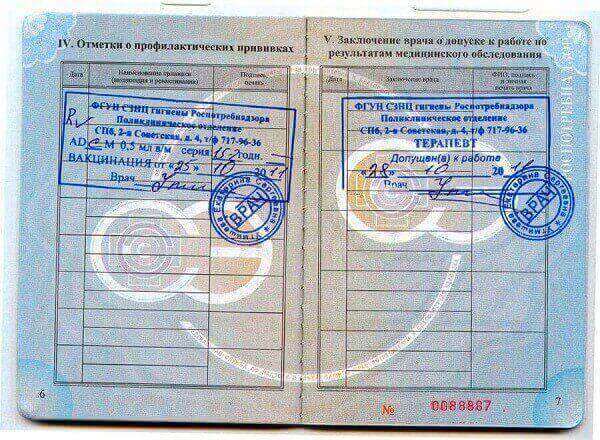 IV. Отметки о профилактических прививках
Дата
Наименование прививки
(вакцинация и ревакцинация)
Подпись
печать
ФГУН СЗНЦ гигиены Роспотребнадзора
Поликлиническое отделение
СПб, 2-я Советская, д. 4, т/ф 717-96-36
RV
АДС М 0,5 мл в/м серия 152 годн.
ВАКЦИНАЦИЯ от «25» 10 2011
Врач
ВРАЧ
Екатерина Сергеевна
6
V. Заключение врача о допуске к работе по
результатам медицинского обследования
Дата
Заключение врача
ФИО, подпись
и личная
печать врача
ФГУН СЗНЦ гигиены Роспотребнадзора
Поликлиническое отделение
СПб, 2-я Советская, д. 4, т/ф 717-96-36
ТЕРАПЕВТ
Допущен(а) к работе
«28» 10 2011
Врач
ВРАЧ
Екатерина Сергеевна
РОСПОТРЕБНАДЗОР
№ 0088887
7